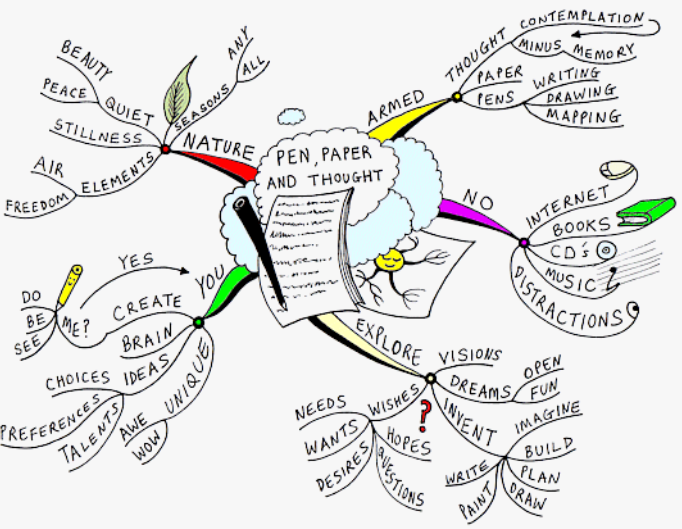 PEN, PAPER
AND THOUGHT
ARMED
THOUGHT
CONTEMPLATION
MINUS MEMORY
PAPER
PENS
WRITING
DRAWING
MAPPING
NO
INTERNET
BOOKS
CD's
MUSIC
DISTRACTIONS
EXPLORE
VISIONS
DREAMS
OPEN
FUN
INVENT
IMAGINE
BUILD
PLAN
DRAW
PAINT
WRITE
WISHES
?
NEEDS
WANTS
DESIRES
HOPES
QUESTIONS
YOU
YES
CREATE
ME?
DO
BE
SEE
BRAIN
IDEAS
CHOICES
PREFERENCES
TALENTS
UNIQUE
AWE
WOW
NATURE
SEASONS
ANY
ALL
QUIET
BEAUTY
PEACE
STILLNESS
ELEMENTS
AIR
FREEDOM